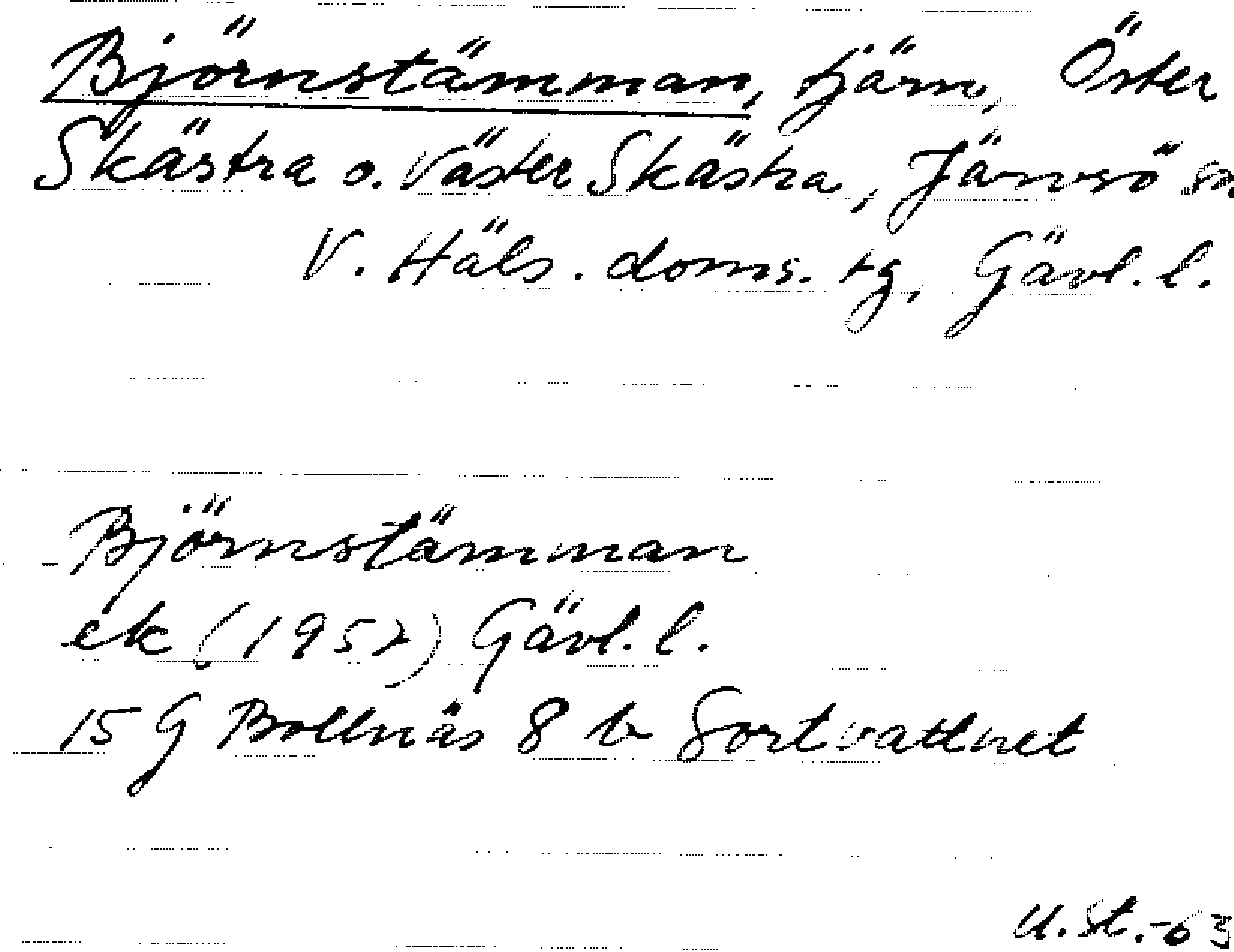 Björnstämman, tjärn, Öster
Skästra o. Väster Skästra, Järvsö sn
V. Häls. doms. tg, Gävl. l.
Björnstämman
ek (1957) Gävl. l.
15 G Bollnäs 8 b Gortvattnet
U. St. -63